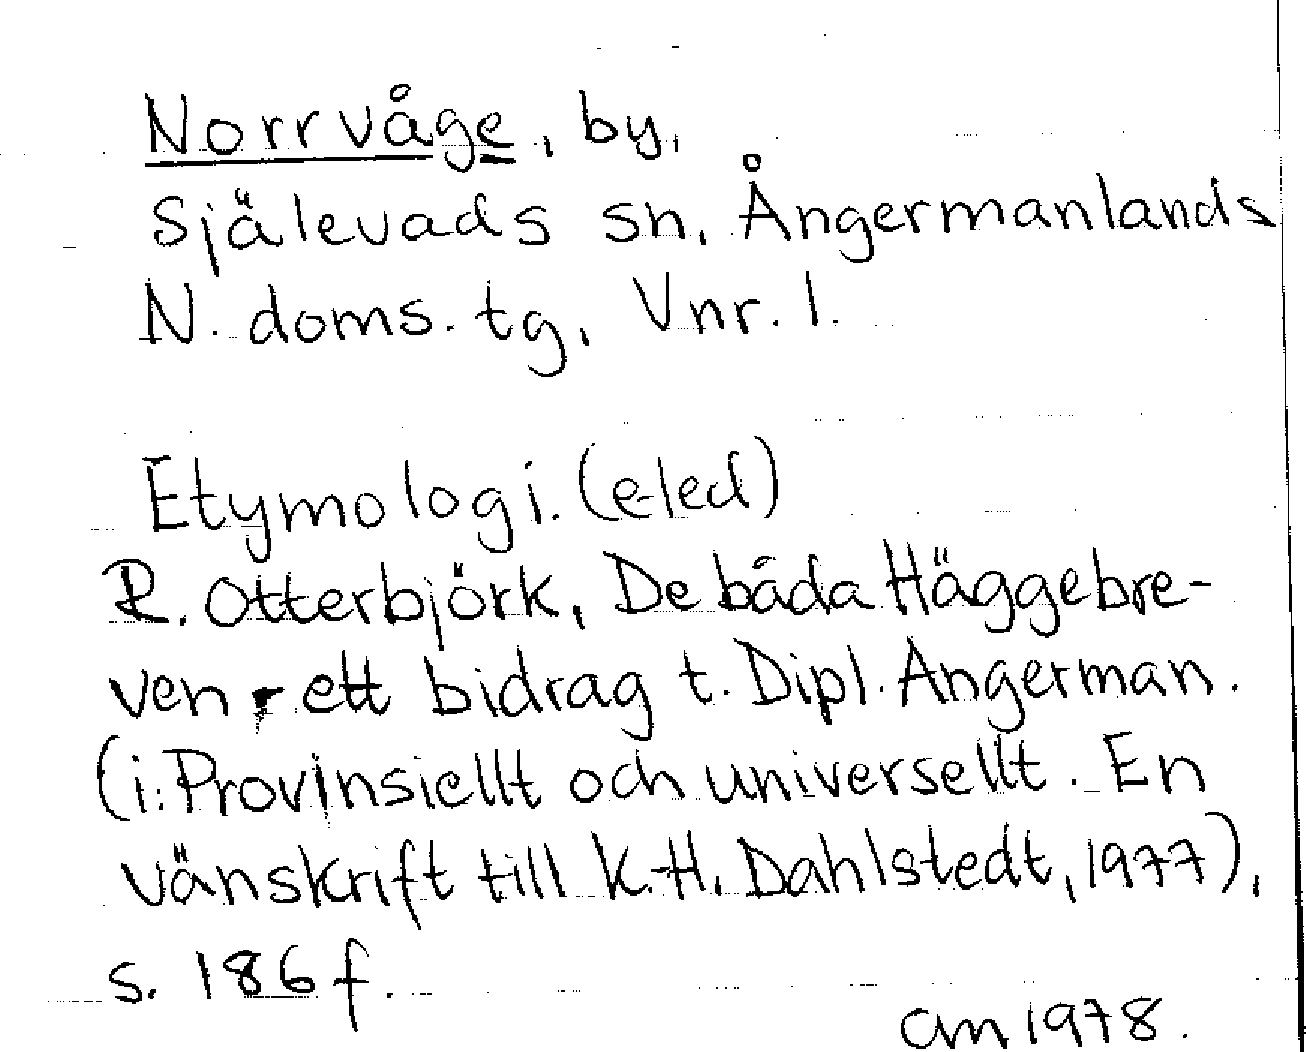 Norrvåge, by,
Själevads sn, Ångermanlands
N. doms. tg, Vnr. 1.
Etymologi. (e-led)
R. Otterbjörk, De båda Häggebre-
ven - ett bidrag t. Dipl. Angerman.
(i: Provinsiellt och universellt. En
vänskrift till K.-H. Dahlstedt, 1977),
s. 186 f.
am 1978.